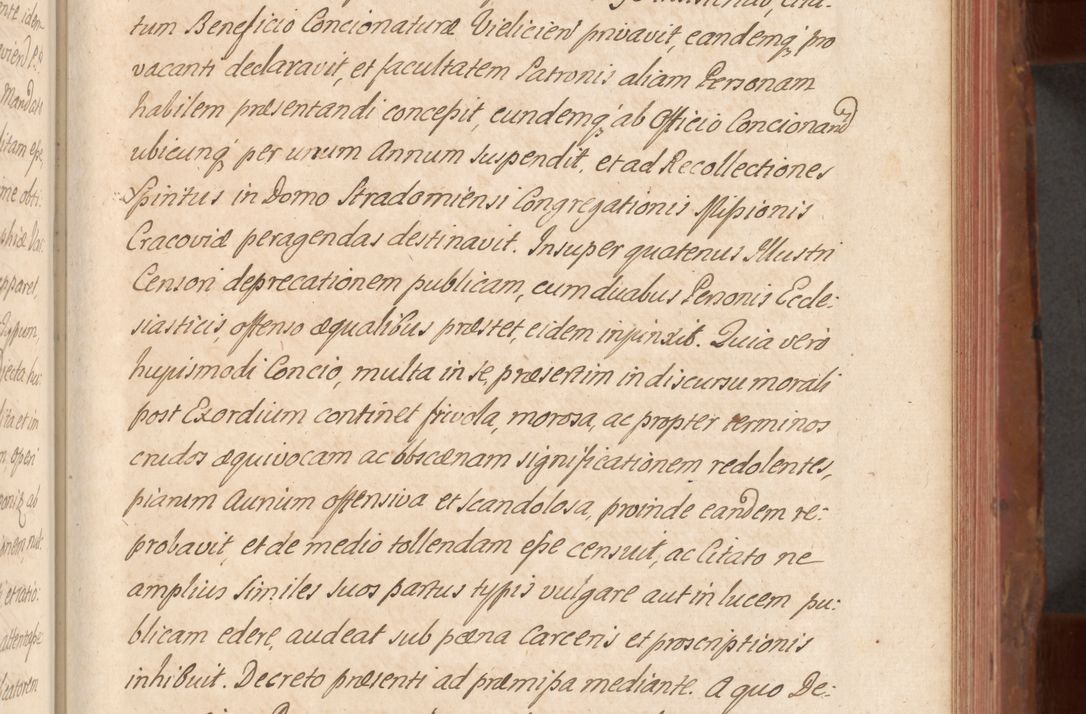 tum Beneficio Concionaturæ Vieliciens privavit, eandemq̃ pro
vacanti declaravit, et facultatem Patronis aliam Personam
habilem præsentandi concepit, eundemq̃ ab Officio Concionandi
ubicunq̃ per unum Annum suspendit, et ad Recollectiones
Spiritus in Domo Stradomiensi Congregationis Missionis
Cracoviæ peragendas destinavit. Insuper quatenus Illustri
Censori deprecationem publicam, cum duabus Personis Eccle-
siasticis, offenso æqualibus præstet, eidem injunxit. Quia vero
hujusmodi Concio, multa in se, præsertim in discursu morali
post Exordium continet frivola, morosa, ac propter terminos
crudos æquivocam ac obscænam significationem redolentes,
piarum Aurium offensiva et scandolosa, proinde eandem re-
probavit, et de medio tollendam esse censuit, ac Citato ne
amplius similes suos partus typis vulgare aut in lucem pu-
blicam edere, audeat sub pæna Carceris et proscriptionis
inhibuit. Decreto præsenti ad præmissa mediante. A quo De-